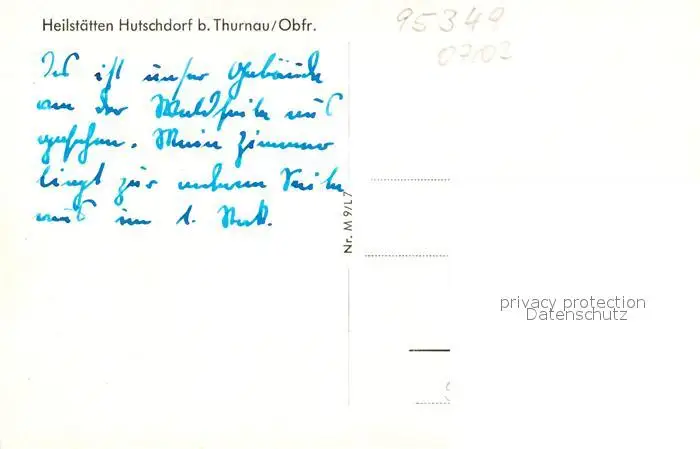 Heilstätten Hutschdorf b. Thurnau/Obfr.
95349
07.03
Das ist unser Gebäude
von der Waldseite aus
gesehen. Mein Zimmer
liegt zur anderen Seite
aus im 1. Stock.
Nr. M 9/L7
privacy protection
Datenschutz